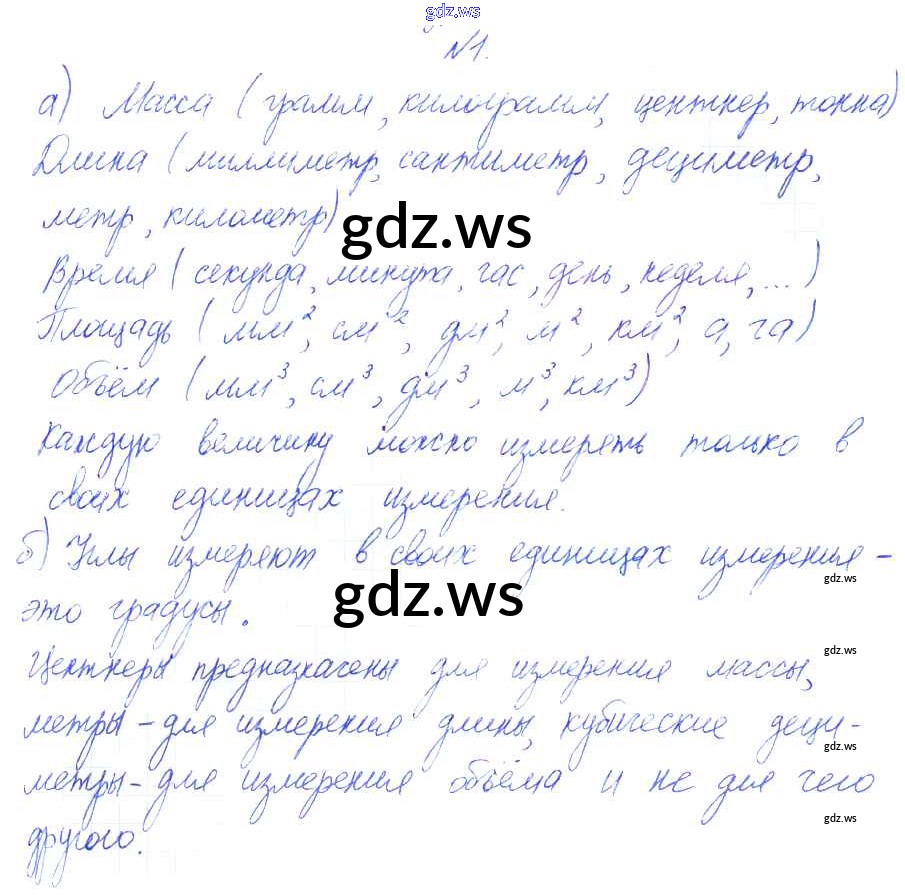 gdz.ws
№1.
а) Масса (грамм, килограмм, центнер, тонна)
Длина (миллиметр, сантиметр, дециметр,
метр, километр)
gdz.ws
Время (секунда, минута, час, день, неделя, ...)
Площадь (мм², см², дм², м², км², а, га)
Объём (мм³, см³, дм³, м³, км³)
Каждую величину можно измерять только в
своих единицах измерения.
б) Углы измеряют в своих единицах измерения -
gdz.ws
gdz.ws
это градусы.
gdz.ws
Центнеры предназначены для измерения массы,
метры - для измерения длины, кубические деци-
gdz.ws
метры - для измерения объёма и не для чего
gdz.ws
другого.